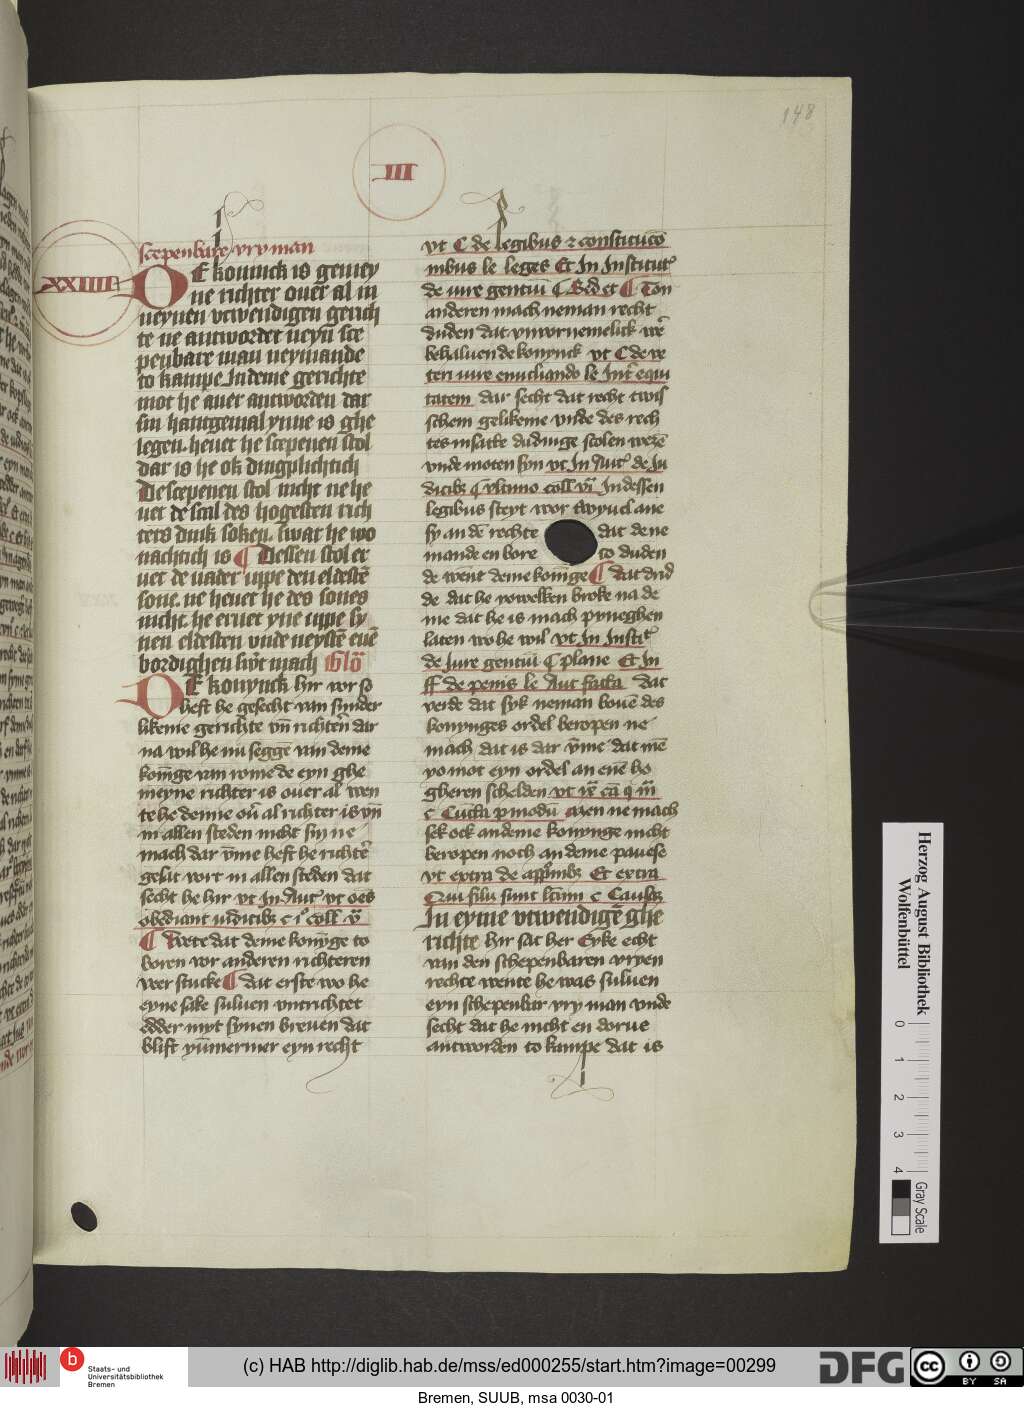 148
III
XXIIII
scepenbare vryman
DE konnick is gemey
ne richter ouer al in
neynen vtwendigen gerich
te ne antwordet neyn sce
penbare man neymande
to kampe Jndeme gerichte
mot he auer antworden dar
sin hantgemal ynne is ghe
legen. heuet he scepenen stol
dar is he ok dingplichtich
De scepenen stol nicht ne he
uet de scal des hogesten rich
ters dink soken. swat he wo
nachtich is ¶ Dessen stol er
uet de uader uppe den eldestē
sone. ne heuet he des sones
nicht. he eruet yne uppe sy
nen eldesten vnde neystē euē
bordighen swert mach Glo
DE konynck hir vor so
heft he gesecht van sunder
likeme gerichte vn̄ richtern dar
na wil he nu seggē van deme
konige van rome de eyn ghe
meyne richter is ouer al wen
te he denne ou̅ al richter is vn̄
in allen steden nicht sin ne
mach dar v̄me heft he richter
gesat wort in allen steden dat
secht he hir vt Jn Aut vt oēs
obediant iudicibꝫ c i coll v
¶ Wete dat deme konyge to
boren vor anderen richteren
veer stucke ¶ dat erste wo he
eyne sake suluen vntrichtet
edder myt synen breuen dat
blift yūmermer eyn recht
vt C de legibus ⁊ constitucō
nibus le leges Et Jn Jnstitut
de iure gentiū ¶ Sed et ¶ Ton
anderen mach neman recht
duden dat vnvornemelick wer
behaluen de konynck vt C de ve
teri iure enucliando le Jnt equi
tatem dar secht dat recht twis
schem gelikeme vnde des rech
tes insatte dudinge scolen wesē
vnde moten syn vt Jn Aut de Ju
dicibꝫ ¶ vltimo coll vi Jndessen
legibus steyt wor twyuel ane
sy an dē rechte dat de ne
mande en bore to duden
de went deme konige ¶ dat drid
de dat he vorvesten broke na de
me dat he is mach pyneghen
laten wo he wil vt Jn Jnstit
de Jure gentiū ¶ plane Et Jn
ff de penis le Aut facta dat
verde dat syk neman bouē des
konynges ordel beropen ne
mach dat is dar v̄me dat mē
yo mot eyn ordel an enē ho
gheren schelden
c Cuncta p modū Men ne mach
sek ock andeme konynge nicht
beropen noch an deme pauese
vt extra de appllnibꝫ Et extra
Qui filii sunt ltimi c Causꝫ
Jn eyme vtwendigē ghe
richte hir sat her Eyke echt
van den schepenbaren vryen
rechte wente he was suluen
eyn schepenbar vry man vnde
secht dat he nicht en dorue
antworden to kampe dat is
Herzog August Bibliothek
Wolfenbüttel
0 1 2 3 4
Gray Scale
b
Staats- und
Universitätsbibliothek
Bremen
(c) HAB http://diglib.hab.de/mss/ed000255/start.htm?image=00299
DFG
cc
BY SA
Bremen, SUUB, msa 0030-01